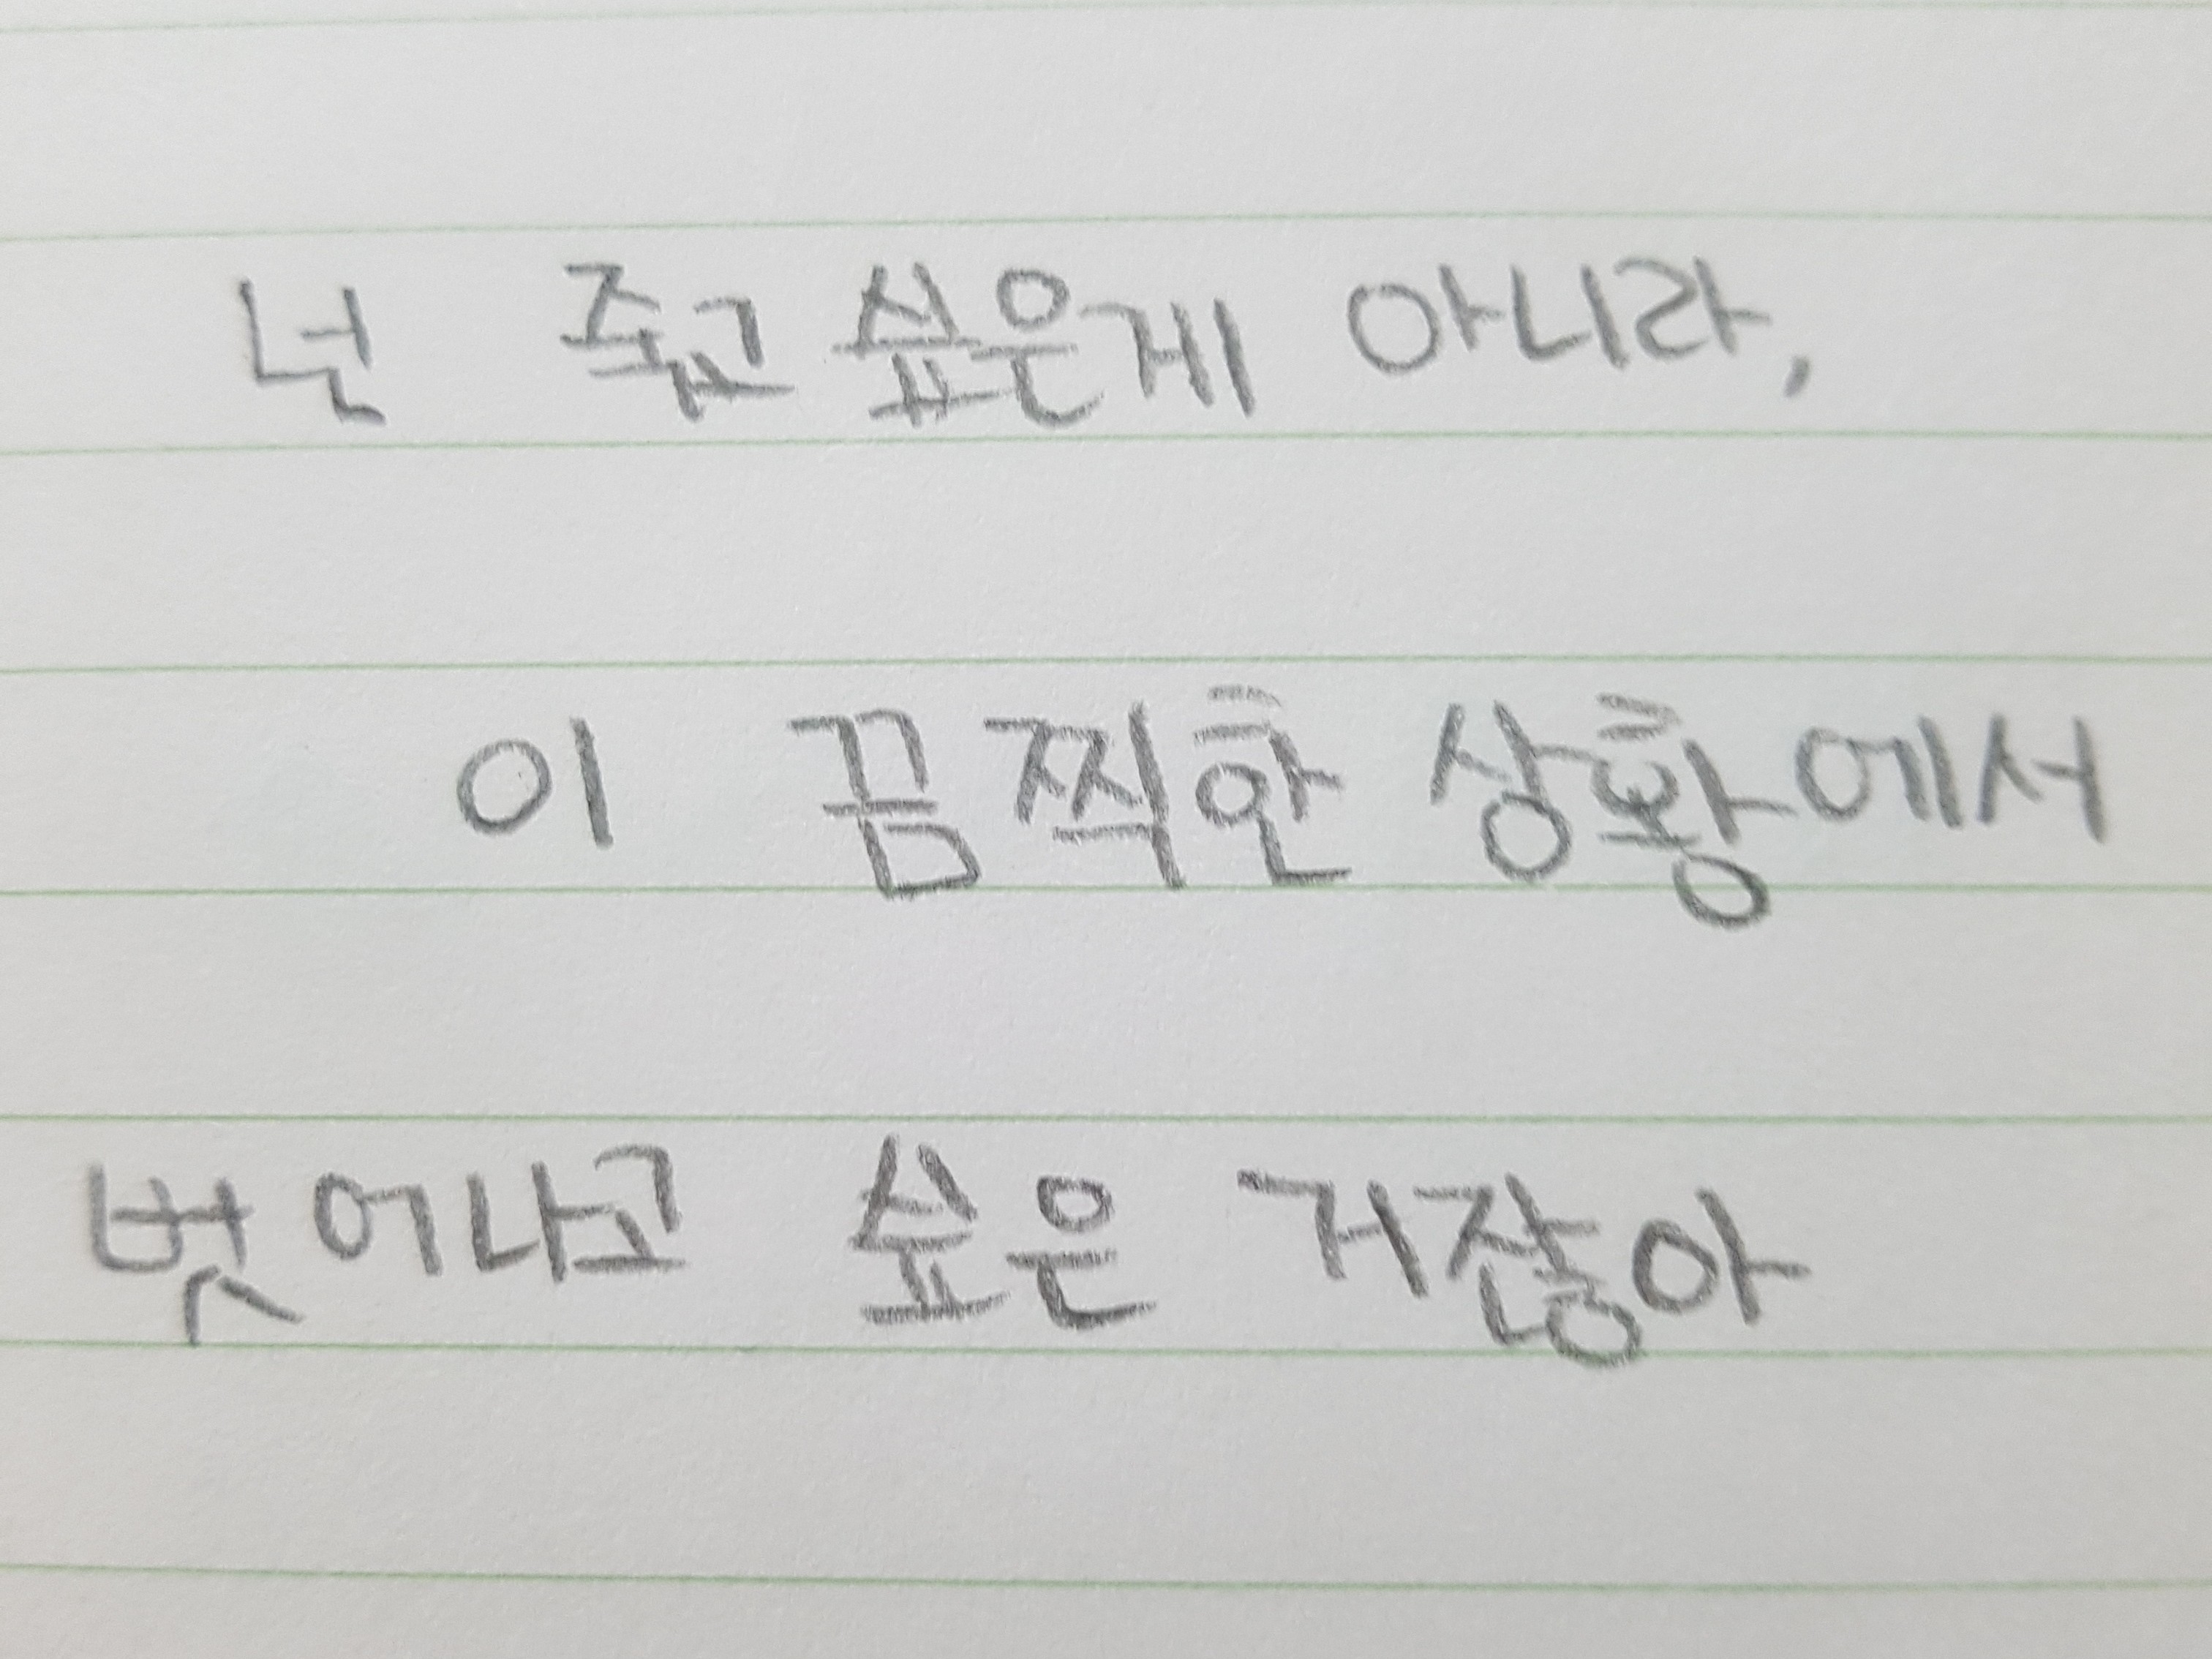 넌 죽고 싶은게 아니라,
이 끔찍한 상황에서
벗어나고 싶은 거잖아